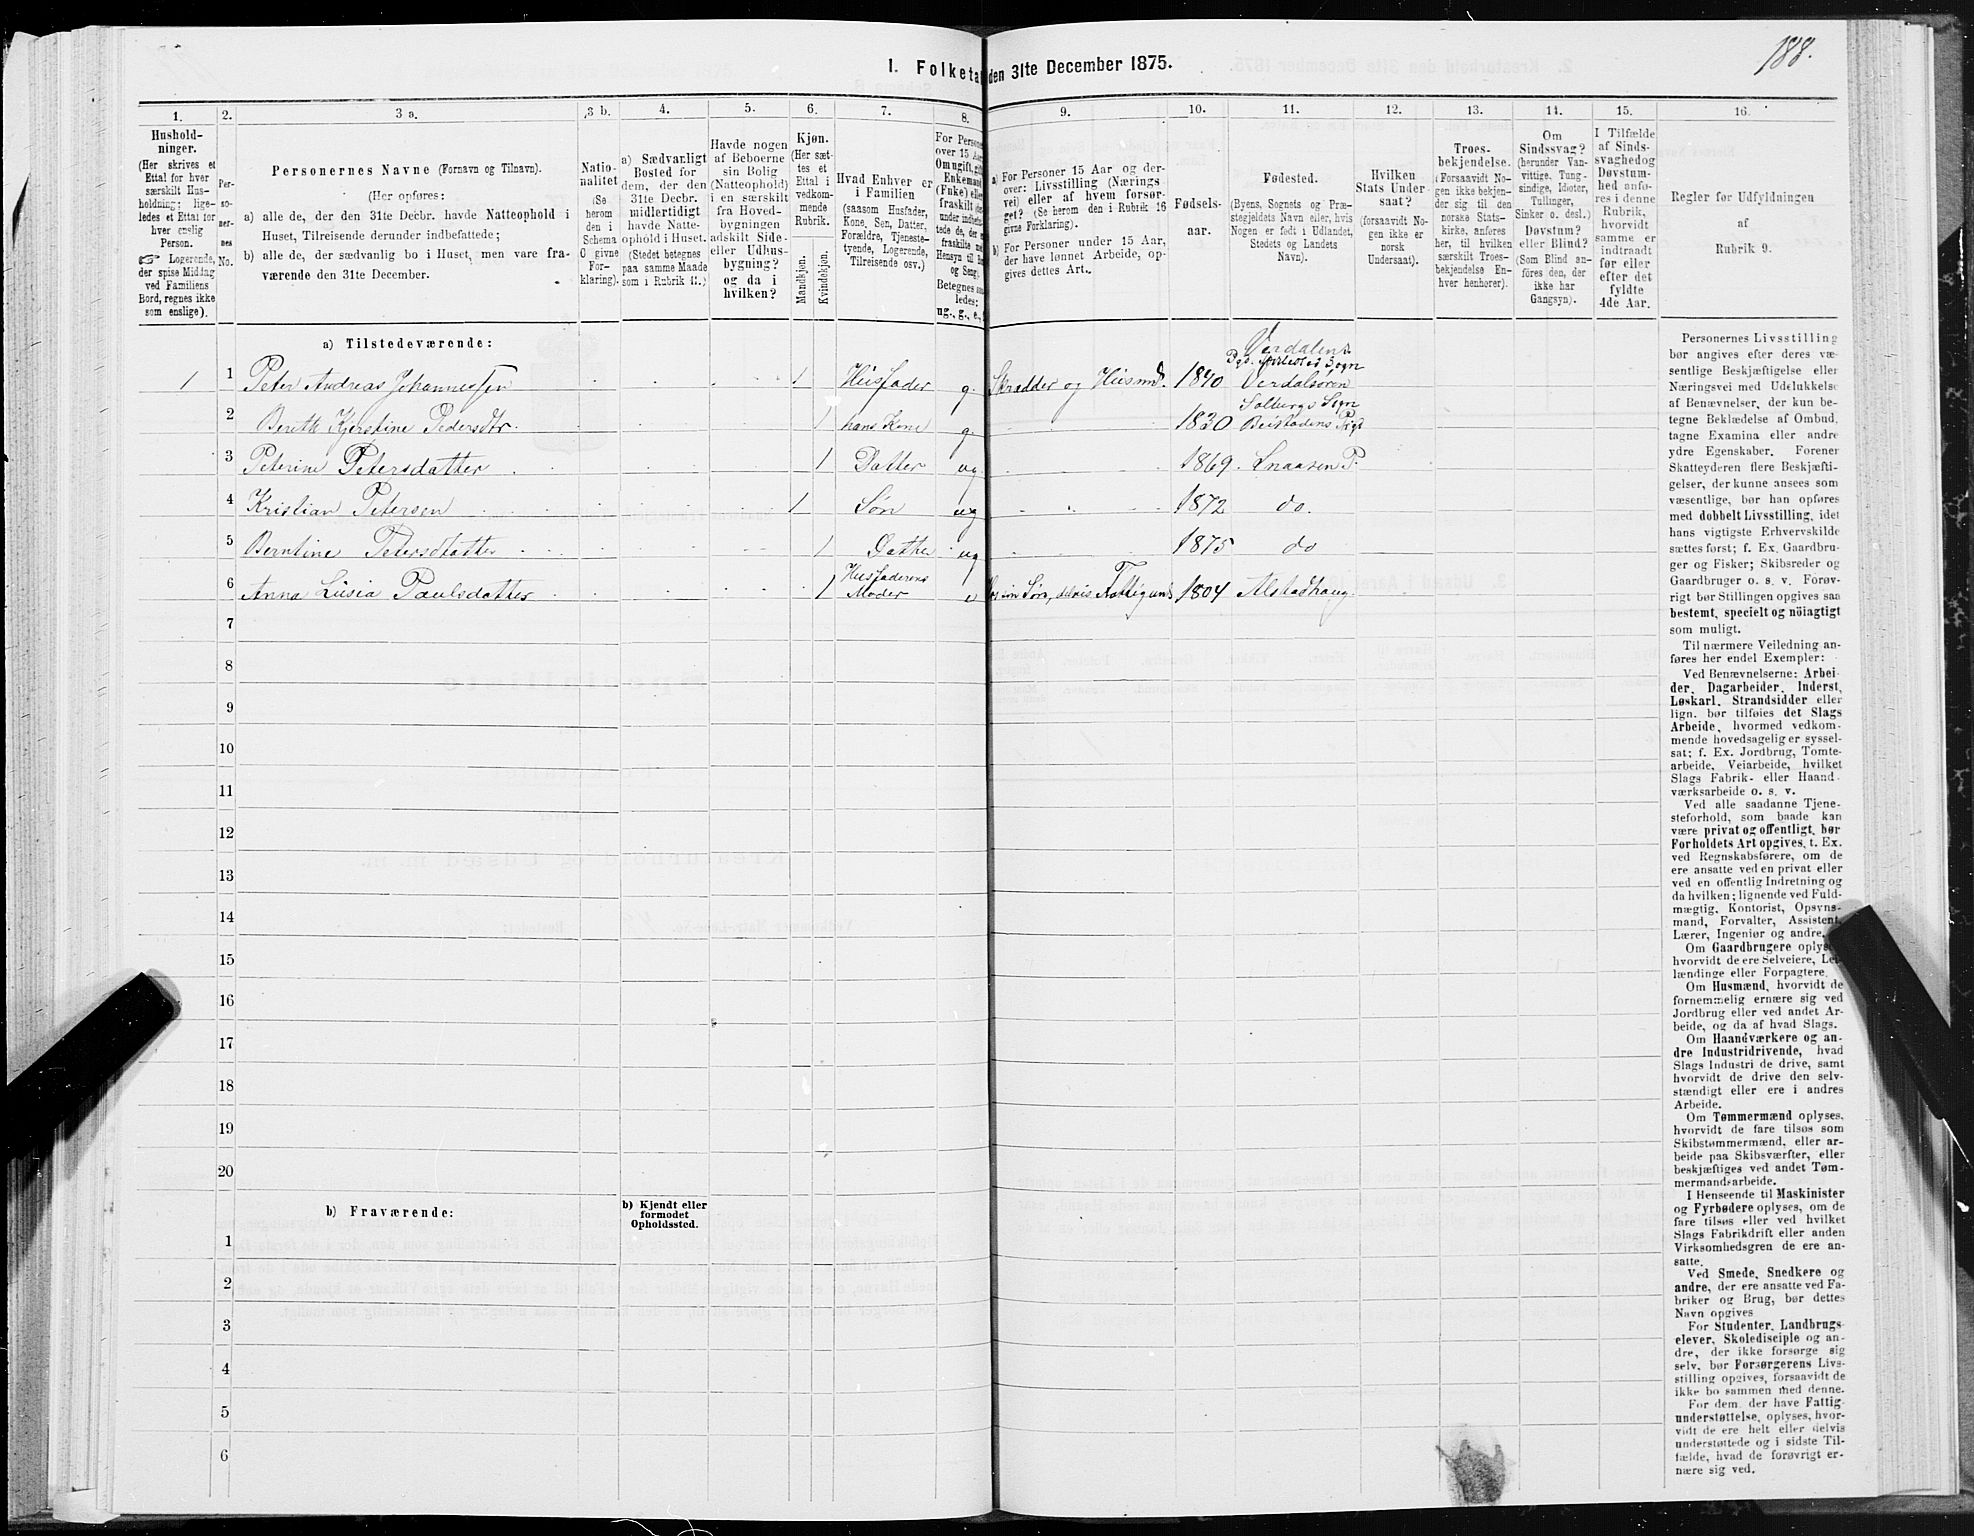 188.
1. Folketal den 31te December 1875.
1. 2. 3 a. 3 b. 4. 5. 6. 7. 8. 9. 10. 11. 12. 13. 14. 15. 16.
Hushold-
ninger.
(Her skrives et
Ettal for hver
særskilt Hus-
holdning; lige-
ledes et Ettal for
hver enslig
Person.
☞ Logerende,
der spise Middag
ved Familiens
Bord, regnes ikke
som enslige).
Per-
so-
ner-
nes
No.
Personernes Navne (Fornavn og Tilnavn).
(Her opføres:
a) alle de, der den 31te Decbr. havde Natteophold i
Huset, Tilreisende derunder indbefattede;
b) alle de, der sædvanlig bo i Huset, men vare fra-
værende den 31te December.
Natio-
nalitet
(Se
herom
den i
Schema
O givne
For-
klaring).
a) Sædvanligt
Bosted for
dem, der den
31te Decbr.
midlertidigt
havde Natte-
ophold i Huset.
(Stedet betegnes
paa samme Maade
som i Rubrik 11.)
Havde nogen
af Beboerne
sin Bolig
(Natteophold)
i en særskilt
fra Hoved-
bygningen
adskilt Side-
eller Udhus-
bygning?
og da i
hvilken?
Kjøn.
(Her sæt-
tes et
Ettal i
vedkom-
mende
Rubrik.
Mandkjøn.
Kvindekjøn.
Hvad Enhver er
i Familien
(saasom Husfader,
Kone, Søn, Datter,
Forældre, Tjeneste-
tyende, Logerende,
Tilreisende osv.)
For Persone
over 15 Aa
Omngift, gif
Enkemand
(Fnke) elle
fraskilt de
under indbefat-
tede de, der e
fraskilte me
Hensyn til Bo
og Seng
Betegnes saa
ledes:
ug., g., e.,
a) For Personer 15 Aar og der-
over: Livsstilling (Nærings
vei) eller af hvem forsør-
get? (Se herom den i Rubrik 16
givne Forklaring).
b) For Personer under 15 Aar,
der have lønnet Arbeide, op-
gives dettes Art.
Fødsels-
aar.
Fødested.
(Byens, Sognets og Præ-
stegjeldets Navn eller, hvis
Nogen er født i Udlandet,
Stedets og Landets
Navn).
Hvilken
Stats Under-
saat?
(forsaavidt No-
gen ikke er
norsk
Undersaat).
Troes-
bekjendelse.
(Forsaavidt No-
gen ikke bekjen-
der sig til den
norske Stats-
kirke, anføres
her, til hvilken
særskilt Troes-
bekjendelse En-
hver henhører).
Om
Sindssvag?
(herunder Van-
vittige, Tung-
sindige, Idioter,
Tullinger,
Sinker o. desl.)
Døvstum?
eller Blind?
(Som Blind an-
føres den, der
ikke har
Gangsyn).
I Tilfælde
af Sinds-
svaghedog
Døvstum-
hed anfø-
res i denne
Rubrik,
hvorvidt
samme er
indtraadt
før eller
efter det
fyldte
4de Aar.
Regler for Udfyldningen
af
Rubrik 9.
a) Tilstedeværende:
1 1 Peter Andreas Johannessen 1 Husfader g. Skrædder og Husmd. 1840 Verdalens Pgd. Sogn Verdalsøren
2 Berith Kjerstine Pedersdtr. 1 hans Kone g. 1830 Solbergs Sogn Beistadens Pgd
3 Peterine Petersdatter 1 Datter ug 1869 Snaasen P.
4 Kristian Petersen 1 Søn ug 1872 do.
5 Berntine Petersdatter 1 Datter ug 1875 do
6 Anna Lusia Paulsdatter 1 Husfaderens Moder e Søn, delvis Fattigund. 1804 Alstadhaug.
7
8
9
10
11
12
13
14
15
16
17
18
19
20
b) Fraværende:
b) Kjendt eller
formodet
Opholdssted.
1
2
3
4
5
6
Personernes Livsstilling
bør angives efter deres væ-
sentlige Beskjæftigelse eller
Næringsvei med Udelukkelse
af Benævnelser, der kun be-
tegne Beklædelse af Ombud,
tagne Examina eller andre
ydre Egenskaber. Forener
Skatteyderen flere Beskjæfti-
gelser, der kunne ansees som
væsentlige, bør han opføres
med dobbelt Livsstilling, idet
hans vigtigste Erhvervskilde
sættes først; f. Ex. Gaardbru-
ger og Fisker; Skibsreder og
Gaardbruger o. s. v. Forøv-
rigt bør Stillingen opgives saa
bestemt, specielt og nöiagtigt
som muligt.
Til nærmere Veiledning an-
føres her endel Exempler:
Ved Benævnelserne: Arbei-
der, Dagarbeider, Inderst,
Løskarl, Strandsidder eller
lign. bør tilføies det Slags
Arbeide, hvormed vedkom-
mende hovedsagelig er syssel-
sat; f. Ex. Jordbrug, Tomte-
arbeide, Veiarbeide, hvilket
Slags Fabrik- eller Haand-
værksarbeide o. s. v.
Ved alle saadanne Tjene-
steforhold, som baade kan
være privat og offentligt, bør
Forholdets Art opgives, t. Ex.
ved Regnskabsførere, om de
ere ansatte ved en privat eller
ved en offentlig Indretning og
da hvilken; lignende ved Fuld-
mægtig, Kontorist, Opsyns-
mand, Forvalter, Assistent,
Lærer, Ingeniør og andre.
Om Gaardbrugere oplyse
hvorvidt de ere Selveiere, Lei-
lændinge eller Forpagtere.
Om Husmænd, hvorvidt de
fornemmelig ernære sig ved
Jordbrug eller ved andet Ar-
beide, og da af hvad Slags.
Om Haandværkere og an-
dre Industridrivende, hvad
Slags Industri de drive, samt
hvorvidt de drive den selv-
stændigt eller ere i andres
Arbeide.
Om Tømmermænd oplyses,
hvorvidt de fare tilsøs som
Skibstømmermænd, eller ar-
beide paa Skibsværfter, eller
beskjæftiges ved andet Tøm-
mermandsarbeide.
I Henseende til Maskinister
og Fyrbødere oplyses, om de
fare tilsøs eller ved hvilket
Slags Fabrikdrift eller anden
Virksomhedsgren de ere an-
satte.
Ved Smede, Snedkere og
andre, der ere ansatte ved Fa-
briker og Brug, bør dettes
Navn opgives
For Studenter, Landbrugs-
elever, Skoledisciple og an-
dre, der ikke forsørge sig
selv, bør Forsørgerens Livs-
stilling opgives, forsaavidt de
ikke bo sammen med denne.
For dem, der have Fattig-
understøttelse, oplyses, hvor-
vidt de ere helt eller delvis
understøttede og i sidste Til-
fælde, hvad de forøvrigt er-
nære sig ved.